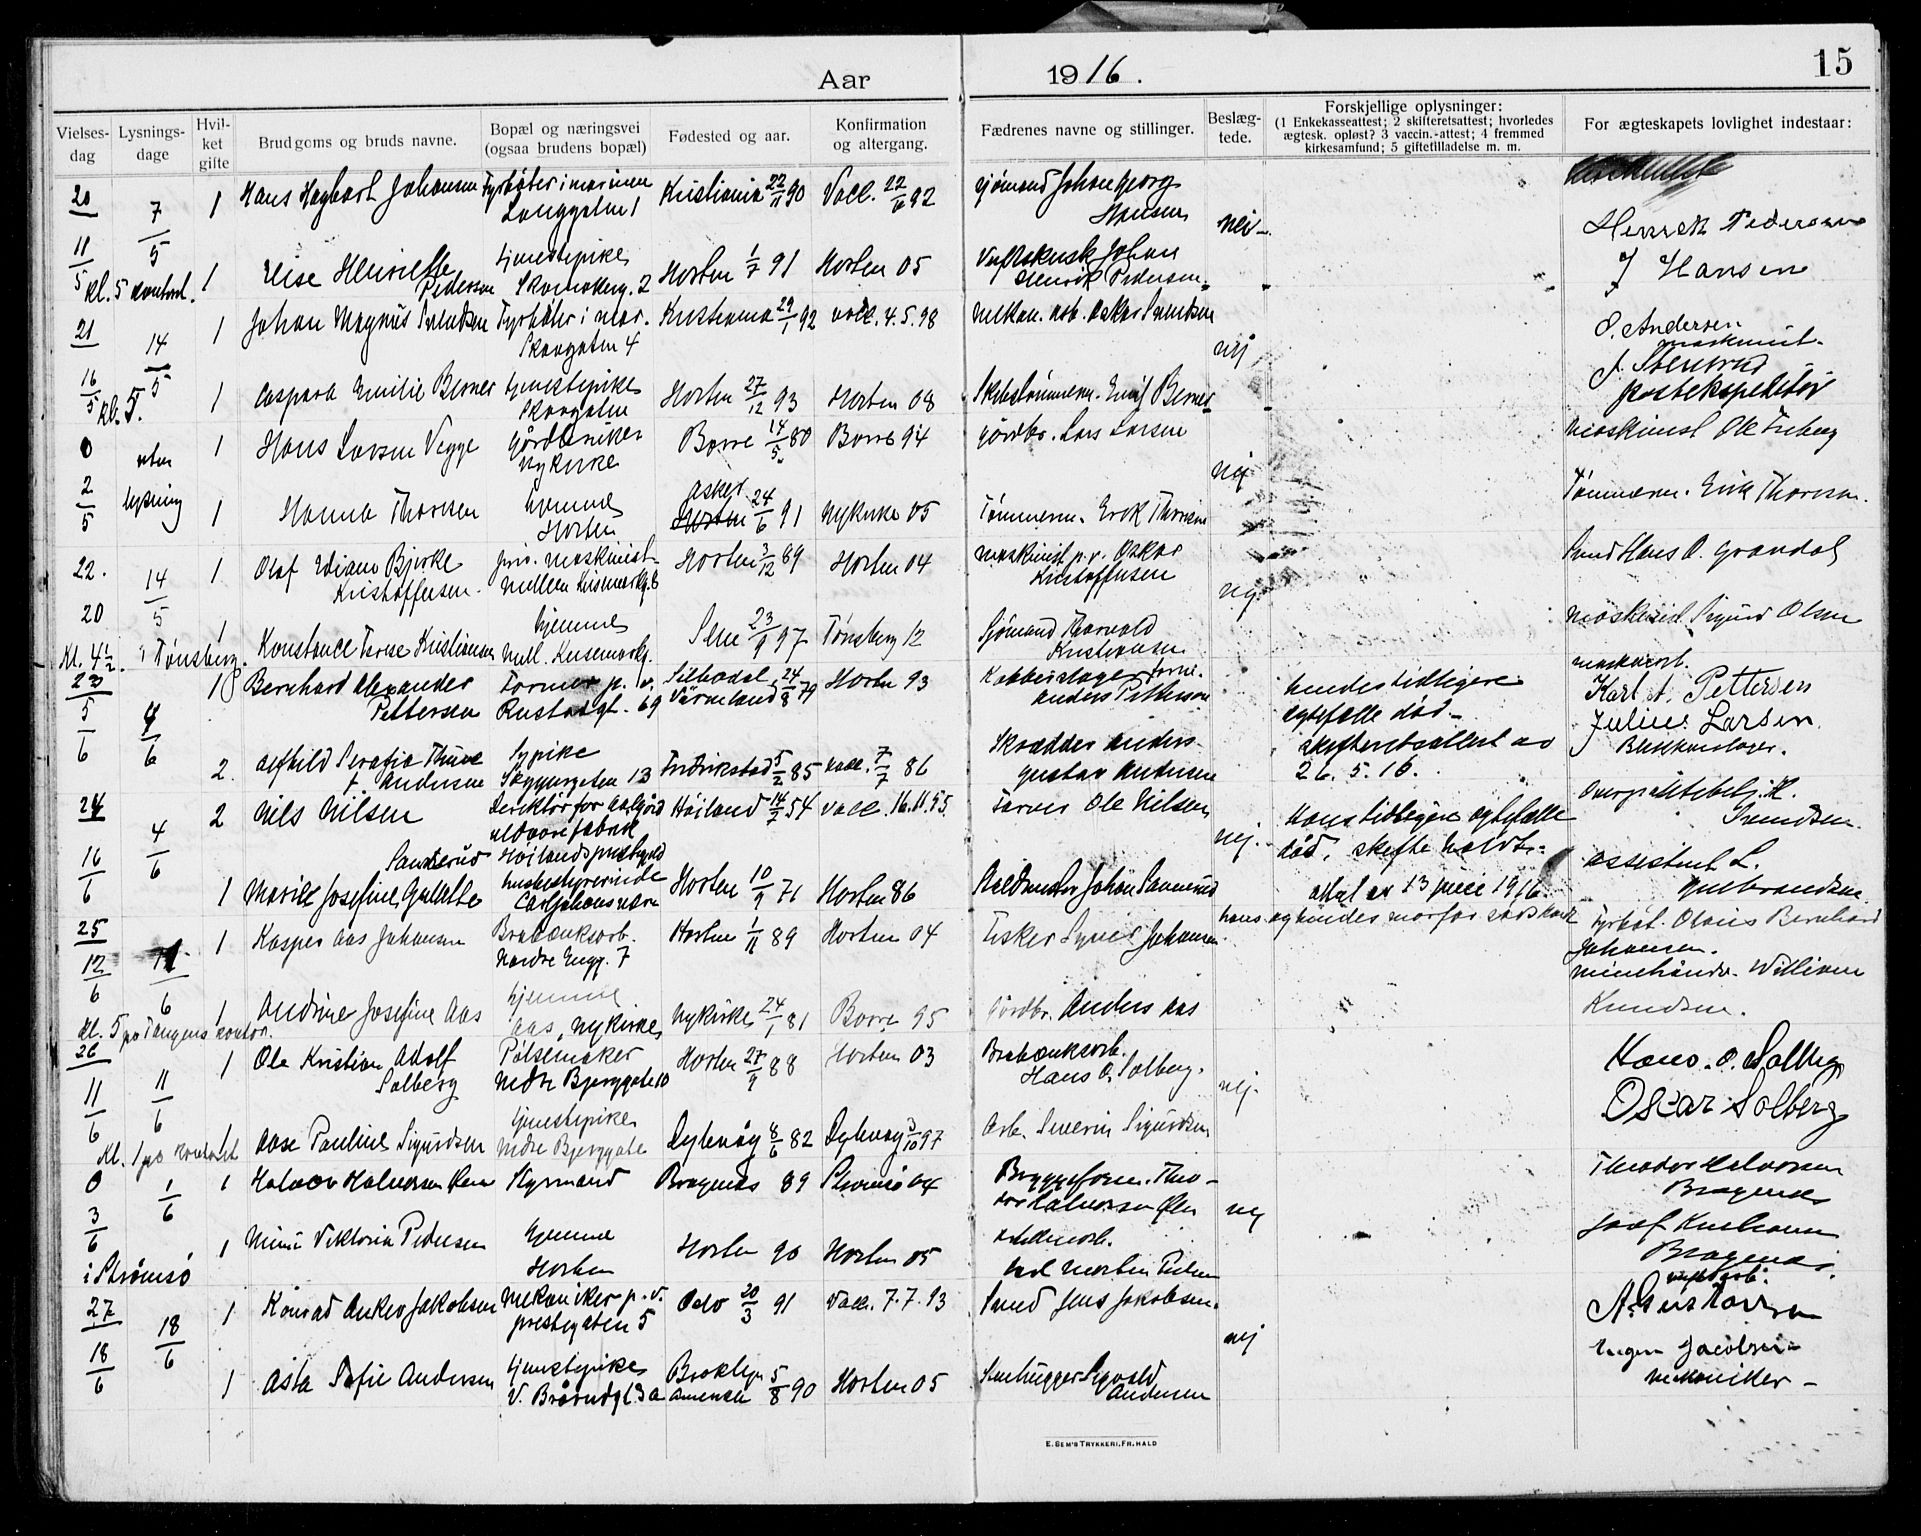 Aar
1916.
15
Vielses-dag
Lysnings-dage
Hvil-ket gifte
Brudgoms og bruds navne.
Bopæl og næringsvei (ogsaa brudens bopæl)
Fødested og aar.
Konfirmation og altergang.
Fædrenes navne og stillinger.
Beslæg-tede.
Forskjellige oplysninger:
(1 Enkekasseattest; 2 skifteretsattest; hvorledes ægtesk. opløst? 3 vaccin.-attest; 4 fremmed kirkesamfund; 5 giftetilladelse m. m.
For ægteskapets lovlighet indestaar:
20 7/5 1 Hans Hagbart Johansen Fyrbøter i marinen Kristiania 22/11 90 Vacc. 22/6 92 sjømand Johan Georg
Langgaten 1 Hansen nei
Henrik Pedersen
11/5 1 Henriette tjenestepike Horten 1/7 91 Horten 05 Johan
kl. 5 kontoret. Pedersen 2 Henrik Pedersen
J Hansen
21 14/5 1 Johan Magnus Svendsen Fyrbøter i mar. Kristiania 29/1 92 vacc. 4.5.98 mekan. arb. Oskar Svendsen
Skovgaten 4 nej
O. Andersen
maskinist.
16/5 1 Caspara Emilie Berner tjenestepike Horten 27/12 93 Horten 08 Skibstømmerm. Emil Berner
kl. 5. Skovgaten
postekspeditør
0 uten 1 Hans Larsen Vegge gårdbruker Borre 14/5 80 Borre 94 gårdbr. Lars Larsen
Nykirke nej
maskinist Ole Friberg
2/5 lysning 1 Hanna Thoresen hjemme asker 24/6 91 Nykirke 05 Tømmerm. Erik Thoresen
Horten Horten
Tømmerm. Erik Thoresen.
22. 14/5 1 Olaf Bjerke priv. maskinist Horten 3/12 89 Horten 04 maskinist p.v. Oskar
Kristoffersen. Kristoffersen nej
Smed Hans O. Grandal
20 1 Konstance Kristiansen hjemme Sem 23/9 97 Tønsberg 12 Sjømand Thorvald
Kl. 4½. i Tønsberg. Kristiansen
maskinist Sigurd Olsen
23 4/6 1 Bernhard Alexander Former p. v. 24/8 79 Horten 93 Kobberslager
Pettersen Rustadgt. 69 Värmland Anders Petterson
hendes tidligere
egtefælle død
maskinarb.
Karl A. Pettersen
5/6 2. Alfhild Serafia Thure sypike Fredrikstad 5/2 85 vacc. 7/7 86 Skrædder Anders
f. Andersen Skippergaten 13 Gustav Andersen
skifteretsattest av
26.5.16.
Julius Larsen
Blikkenslager.
24 4/6 2 Nils Nilsen Direktør for Aalgård Høiland 14/7 54 vacc. 16.11.55. Farver Ole Nilsen
uldvarefabrik nej.
Hans tidligere egtefælle
død, skifte holdt
16/6 Sanderud Høilands prestegjeld
1 Marie Josefine husbestyrerinde Horten 10/9 71 Horten 86 Johan Sannerud
Carljohansværn
attest av 13 juni 1916.
assistent L.
Gulbrandsen
hans og hendes morfar søskende
25 11/6 1 Kasper Aas Johansen Brabænksarb. Horten 1/11 89 Horten 04 Fisker Syver Johansen
Nordre Engg. 7
Fyrbøt. Olaus Bernhard
Johansen.
12/6 1 Andrine Josefine Aas hjemme Nykirke 24/1 81 Borre 95 Gårdbr. Anders Aas
Aas, Nykirke
William
Knudsen.
Kl. 5 på Tangens kontor.
26 11/6 1 Ole Kristian Adolf Pølsemaker Horten 27/9 88 Horten 03 Brabænksarb.
Solberg Nedre Bjerggate 10 Hans O. Solberg. nej.
Hans. O. Solberg
Oscar Solberg
11/6 1 Aase Pauline Sigurdsen tjenestepike Dybvåg 8/6 82 Dybvåg 3/10 97 Arb. Severin Sigurdsen
Kl. 1 på kontoret Nedre Bjerggate
0 1/6 1 Halvor Halvorsen Øen Styrmand Bragernes 89 Strømsø 04 Bryggeform. Theo-
dor Halvorsen Øen nej
Theodor Halvorsen
Bragernes
3/6 1 Mimi Viktoria Pedersen hjemme Horten 90 Horten 05
i Strømsø Horten Karl Morten Pedersen
Bragernes.
27 18/6 1 Konrad Anker Jakobsen Mekaniker p. v. Oslo 20/3 91 Vacc. 7.7.93 Smed Jens Jakobsen.
prestegaten 5 nej
A. Gustavsen
18/6 1 Asta Sofie Andersen tjenestepike Broklyn 5/8 90 Horten 05 Stenhugger Sigvald
V. Brårudgt. 3a Amerika Andersen
Jacobsen
mekaniker
E. SEM'S TRYKKERI, FR.HALD